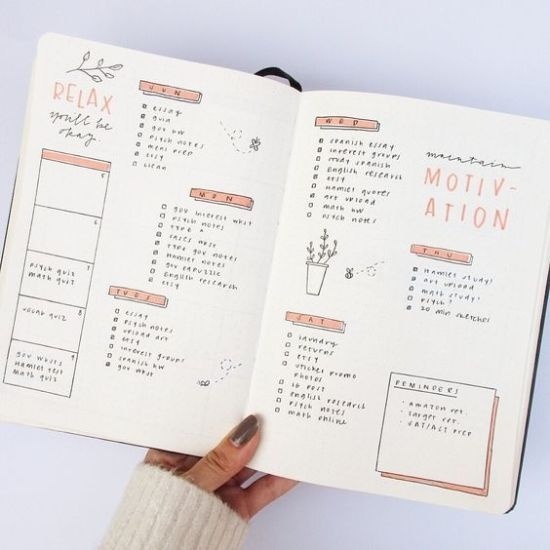 RELAX
you'll be
okay.
5
6
7
psych quiz
math quiz
8
vocab quiz
9
gov whsts
Hamlet test
math quiz
SUN
essay
quia
gov HW
psych notes
meal prep
etsy
clean
MON
gov interest whst
psych notes
type
cases whst
type gov notes
Hamlet notes
gov edpuzzle
English research
etsy
TUES
essay
psych notes
upload art
etsy
interest groups
spanish HW
gov whst
WED
spanish essay
interest groups
study spanish
English research
etsy
Hamlet quotes
art upload
math HW
psych notes
maintain
MOTIV-
ATION
THU
Hamlet study!
art upload
math study!
psych?
20 min sketches
SAT
laundry
returns
etsy
sticker promo
photos
ig post
english research
psych notes
math online
REMINDERS
· amazon ret.
· target ret.
· SAT/ACT prep